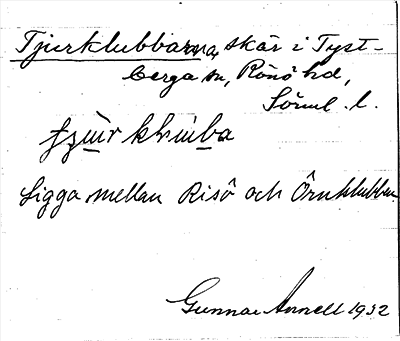 Tjurklubbarna, skär i Tyst-
berga sn, Rönö hd,
Sörml. l.
Ligga mellan Risö och Örnklubben
Gunnar Annell 1932